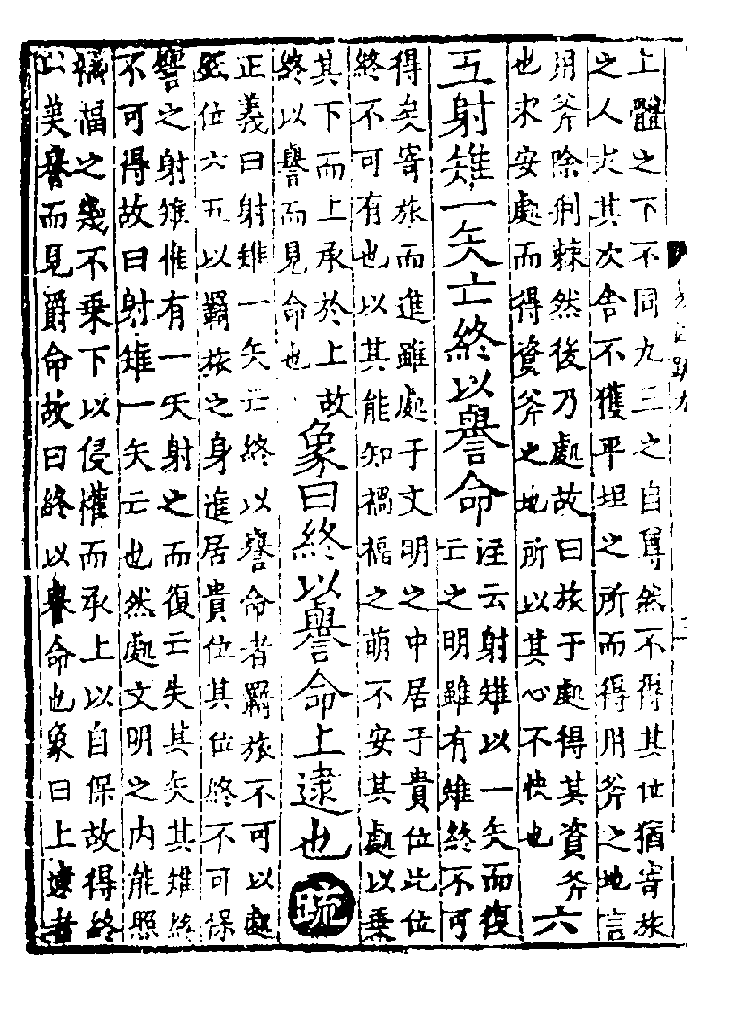 上體之下不同九三之自尊然不得其位猶寄旅
之人求其次舍不獲平坦之所而得用斧之地言
用斧除荆棘然後乃處故曰旅于處得其資斧
也求安處而得資斧之地所以其心不快也
六
五射雉一矢亡終以譽命
注云射雉以一矢而復
亡之明雖有雉終不可
得矣寄旅而進雖處于文明之中居于貴位此位
終不可有也以其能知禍福之萌不安其處以乘
其下而上承於上故
終以譽而見命也
象曰終以譽命上逮也
疏
正義曰射雉一矢亡終以譽命者羈旅不可以處
盛位六五以羈旅之身進居貴位其位終不可保
譬之射雉惟有一矢射之而復亡失其矢其雉終
不可得故曰射雉一矢亡也然處文明之內能照
禍福之幾不乘下以侵權而承上以自保故得終
以美譽而見爵命故曰終以譽命也象曰上逮者